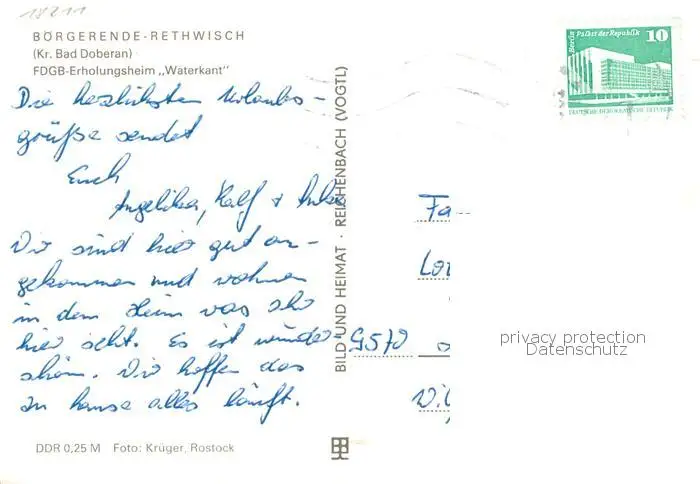 18211
BÖRGERENDE-RETHWISCH
(Kr. Bad Doberan)
FDGB-Erholungsheim „Waterkant"
Die herzlichsten Urlaubs-
grüße sendet
Euch
Angelika, Ralf + Anke
Wir sind hier gut an-
gekommen und wohnen
in dem Heim was ihr
hier seht. Es ist wunder-
schön. Wir hoffen das
zu hause alles läuft.
DDR 0,25 M Foto: Krüger, Rostock
BILD UND HEIMAT · REICHENBACH (VOGTL)
Berlin Palast der Republik
10
DEUTSCHE DEMOKRATISCHE REPUBLIK
Fa
9570
privacy protection
Datenschutz